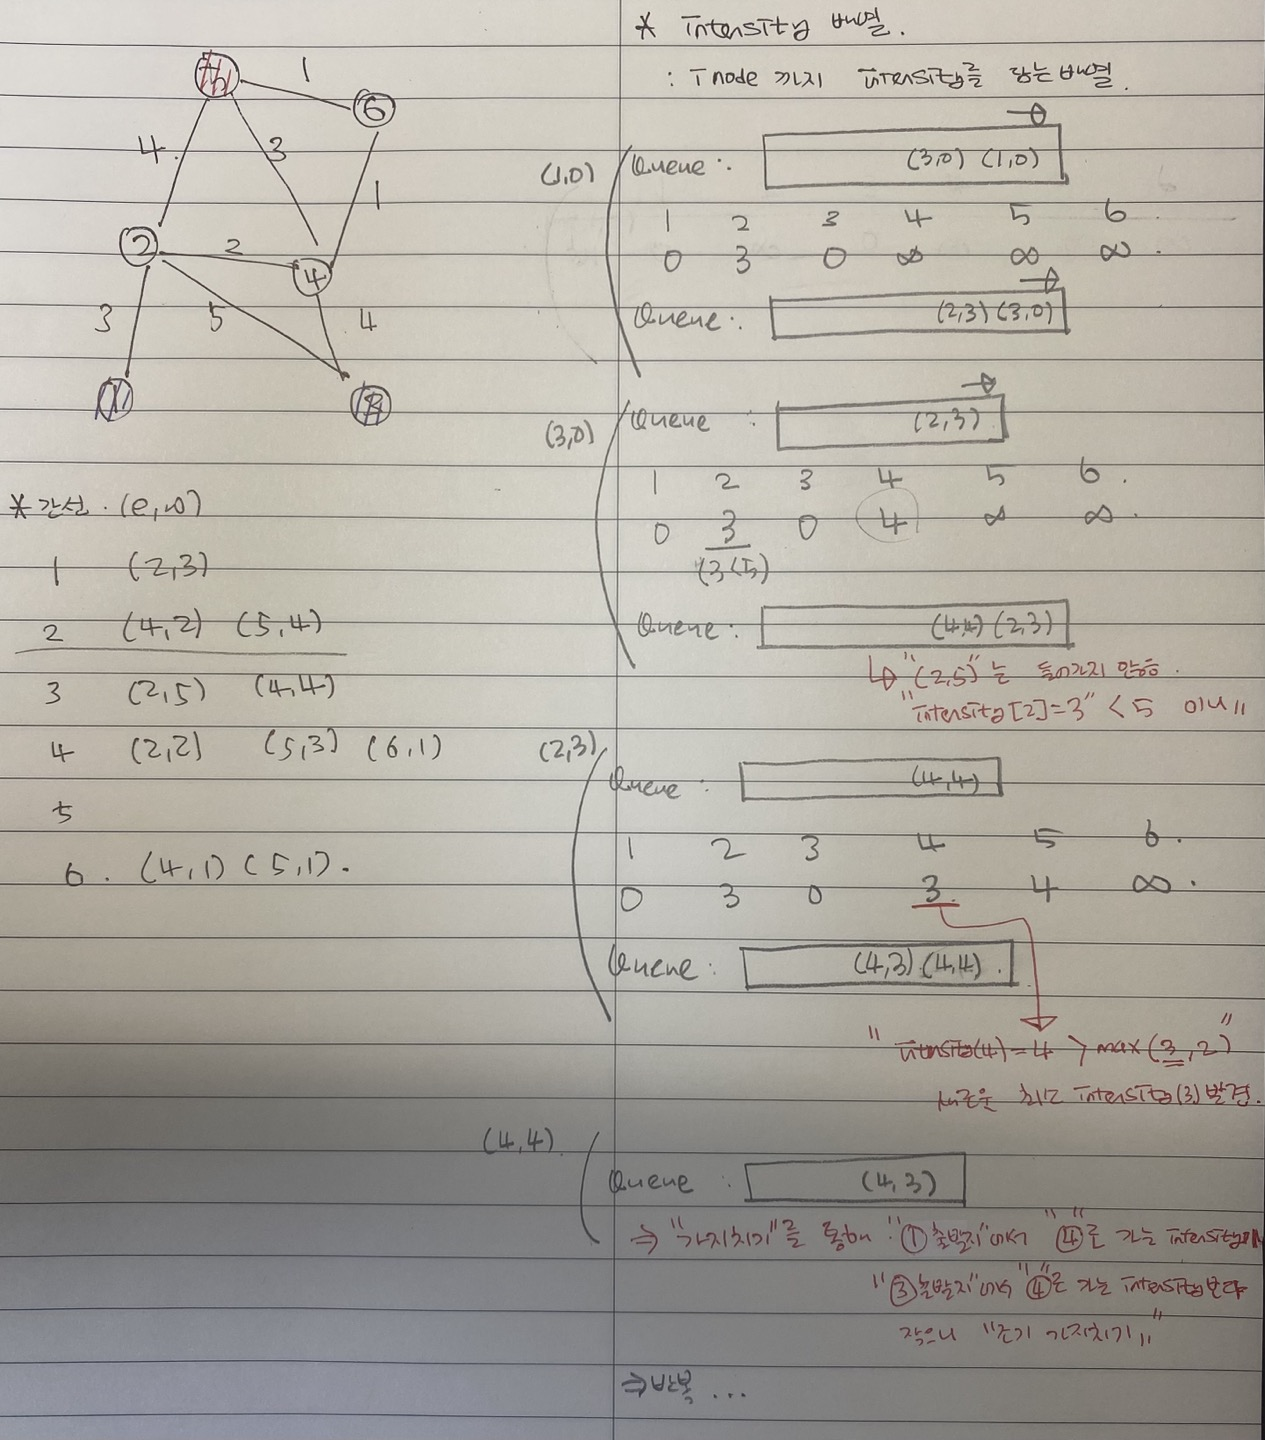 1
6
4
3
1
2
2
4
3
5
4
* 간선. (e,w)
1 (2,3)
2 (4,2) (5,4)
3 (2,5) (4,4)
4 (2,2) (5,3) (6,1)
5
6. (4,1) (5,1).
* Intensity 배열.
: I node 까지 intensity를 담는 배열.
(1,0)
Queue: (3,0) (1,0)
1 2 3 4 5 6.
0 3 0 ∞ ∞ ∞.
Queue: (2,3) (3,0)
(3,0)
Queue: (2,3)
1 2 3 4 5 6.
0 3 0 4 ∞ ∞.
(3<5)
Queue: (4,4) (2,3)
↳ "(2,5)"는 들어가지 않음.
"intensity[2]=3" < 5 이니"
(2,3)
Queue: (4,4)
1 2 3 4 5 6.
0 3 0 3. 4 ∞.
Queue: (4,3) (4,4).
" intensity(4)=4 > max(3,2)"
새로운 최소 intensity(3) 발견.
(4,4)
Queue: (4,3)
⇒ "가지치기"를 통해 "① 출발지"에서 "④"로 가는 intensity가
"③출발지"에서 "④"로 가는 intensity보다
작으니 "조기 가지치기""
⇒ 반복 ...